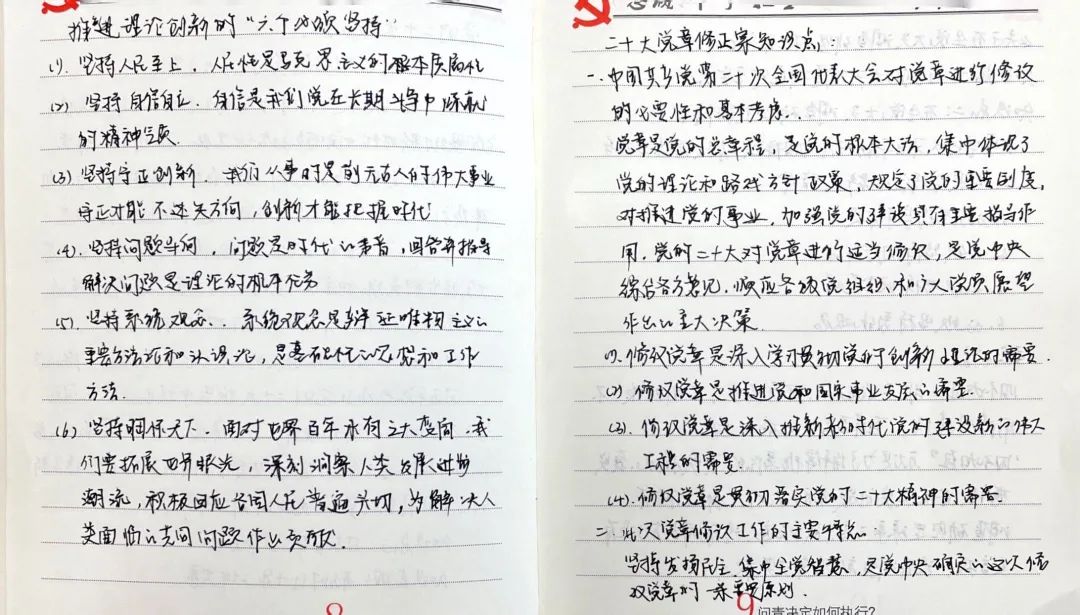 推进理论创新的“六个必须坚持”
(1). 坚持人民至上. 人民性是马克思主义的根本质属性
(2) 坚持自信自立. 自信是我们党在长期斗争中炼就
的精神气质
(3) 坚持守正创新. 我们从事的是前无古人的伟大事业
守正才能不迷失方向, 创新才能把握时代
(4). 坚持问题导向. 问题是时代的声音, 回答并指导
解决问题是理论的根本任务
(5) 坚持系统观念. 系统观念是辩证唯物主义的
重要方法论和认识论, 是基础性的思想和工作
方法.
(6) 坚持胸怀天下. 面对世界百年未有之大变局. 我
们要拓展世界眼光, 深刻洞察人类发展进步
潮流, 积极回应各国人民普遍关切, 为解决人
类面临的共同问题作出贡献.
8
二十大党章修正案知识点:
一. 中国共产党第二十次全国代表大会对党章进行修改
的必要性和基本考虑.
党章是党的总章程, 是党的根本大法, 集中体现了
党的理论和路线方针政策, 规定了党的重要制度,
对推进党的事业, 加强党的建设具有重要指导作
用. 党的二十大对党章进行适当修改, 是党中央
综合各方意见. 顺应各级党组织和广大党员愿望
作出的重大决策.
(1). 修改党章是深入学习贯彻党的创新理论的需要.
(2) 修改党章是推进党和国家事业发展的需要.
(3). 修改党章是深入推新时代党的建设新的伟大
工程的需要.
(4). 修改党章是贯彻落实党的二十大精神的需要.
二. 此次党章修改工作的主要特点
坚持发扬民主. 集中全党智慧, 是党中央确定的这次修
改党章的一条重要原则.
9
问责决定如何执行?